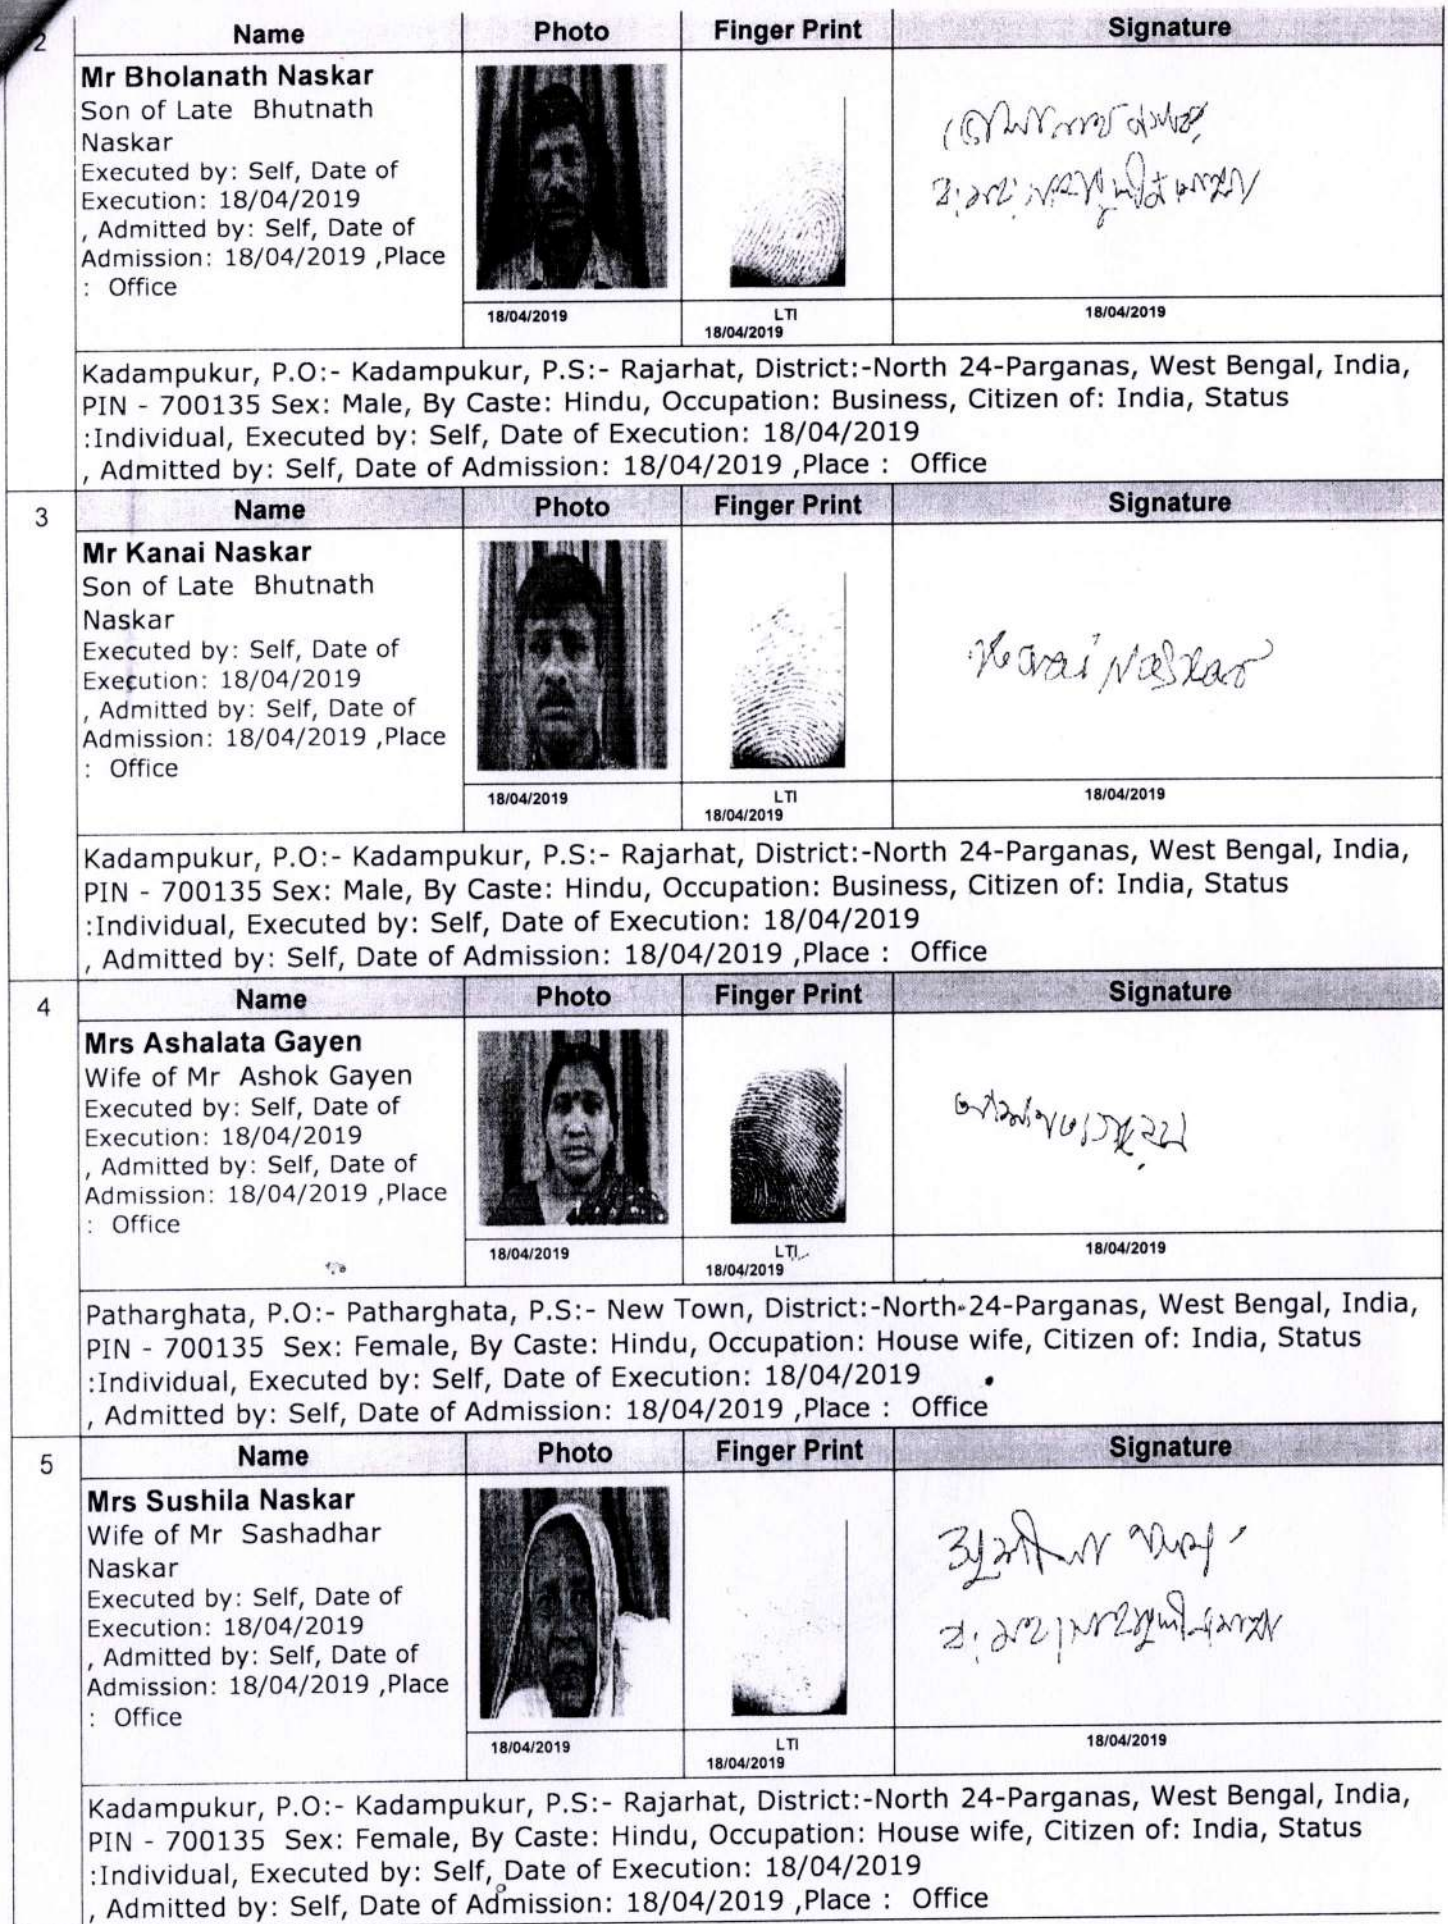 2
Name Photo Finger Print Signature
Mr Bholanath Naskar
Son of Late Bhutnath
Naskar
Executed by: Self, Date of
Execution: 18/04/2019
, Admitted by: Self, Date of
Admission: 18/04/2019 ,Place
: Office
18/04/2019 LTI 18/04/2019
18/04/2019
Kadampukur, P.O:- Kadampukur, P.S:- Rajarhat, District:-North 24-Parganas, West Bengal, India,
PIN - 700135 Sex: Male, By Caste: Hindu, Occupation: Business, Citizen of: India, Status
:Individual, Executed by: Self, Date of Execution: 18/04/2019
, Admitted by: Self, Date of Admission: 18/04/2019 ,Place : Office
3
Name Photo Finger Print Signature
Mr Kanai Naskar
Son of Late Bhutnath
Naskar
Executed by: Self, Date of
Execution: 18/04/2019
, Admitted by: Self, Date of
Admission: 18/04/2019 ,Place
: Office
Kanai Naskar
18/04/2019 LTI 18/04/2019
18/04/2019
Kadampukur, P.O:- Kadampukur, P.S:- Rajarhat, District:-North 24-Parganas, West Bengal, India,
PIN - 700135 Sex: Male, By Caste: Hindu, Occupation: Business, Citizen of: India, Status
:Individual, Executed by: Self, Date of Execution: 18/04/2019
, Admitted by: Self, Date of Admission: 18/04/2019 ,Place : Office
4
Name Photo Finger Print Signature
Mrs Ashalata Gayen
Wife of Mr Ashok Gayen
Executed by: Self, Date of
Execution: 18/04/2019
, Admitted by: Self, Date of
Admission: 18/04/2019 ,Place
: Office
18/04/2019 LTI 18/04/2019
18/04/2019
Patharghata, P.O:- Patharghata, P.S:- New Town, District:-North-24-Parganas, West Bengal, India,
PIN - 700135 Sex: Female, By Caste: Hindu, Occupation: House wife, Citizen of: India, Status
:Individual, Executed by: Self, Date of Execution: 18/04/2019
, Admitted by: Self, Date of Admission: 18/04/2019 ,Place : Office
5
Name Photo Finger Print Signature
Mrs Sushila Naskar
Wife of Mr Sashadhar
Naskar
Executed by: Self, Date of
Execution: 18/04/2019
, Admitted by: Self, Date of
Admission: 18/04/2019 ,Place
: Office
18/04/2019 LTI 18/04/2019
18/04/2019
Kadampukur, P.O:- Kadampukur, P.S:- Rajarhat, District:-North 24-Parganas, West Bengal, India,
PIN - 700135 Sex: Female, By Caste: Hindu, Occupation: House wife, Citizen of: India, Status
:Individual, Executed by: Self, Date of Execution: 18/04/2019
, Admitted by: Self, Date of Admission: 18/04/2019 ,Place : Office